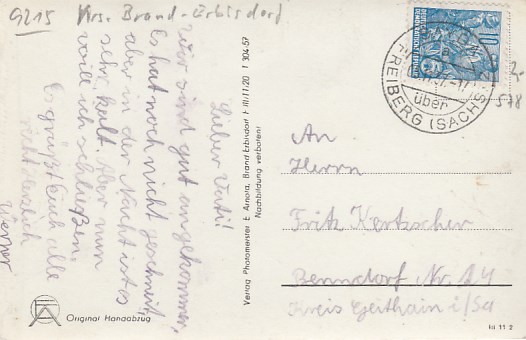 9215 Krs. Brand-Erbisdorf
Lieber Vati!
Wir sind gut angekommen,
es hat noch nicht geschneit,
aber in der Nacht ist es
sehr kalt. Aber nun
will ich schließen.
Es grüßt Euch alle
recht herzlich
Werner
Original Handabzug
Verlag Photomeister E. Arnora, Brand-Erbisdorf I- III/11/20 I 304-57
Nachbildung verboten!
10
DEUTSCHE
DEMOKRATISCHE REPUBLIK
über
FREIBERG (SACHS)
2,-
578
An
Herrn
Fritz Kertzscher
Benndorf Nr. 24
Kreis Geithain i/Sa
11 2